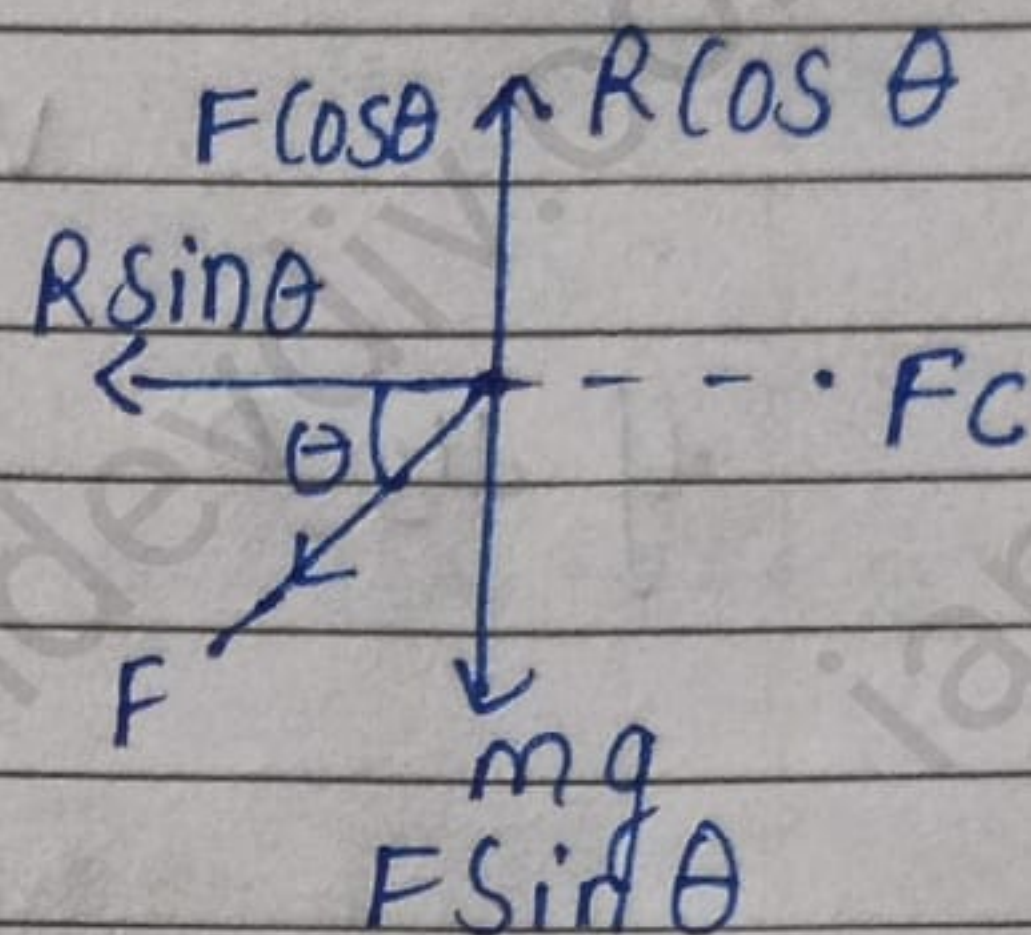 FCosθ RCos θ
Rsinθ
Fc
θ
F
mg
FSinθ